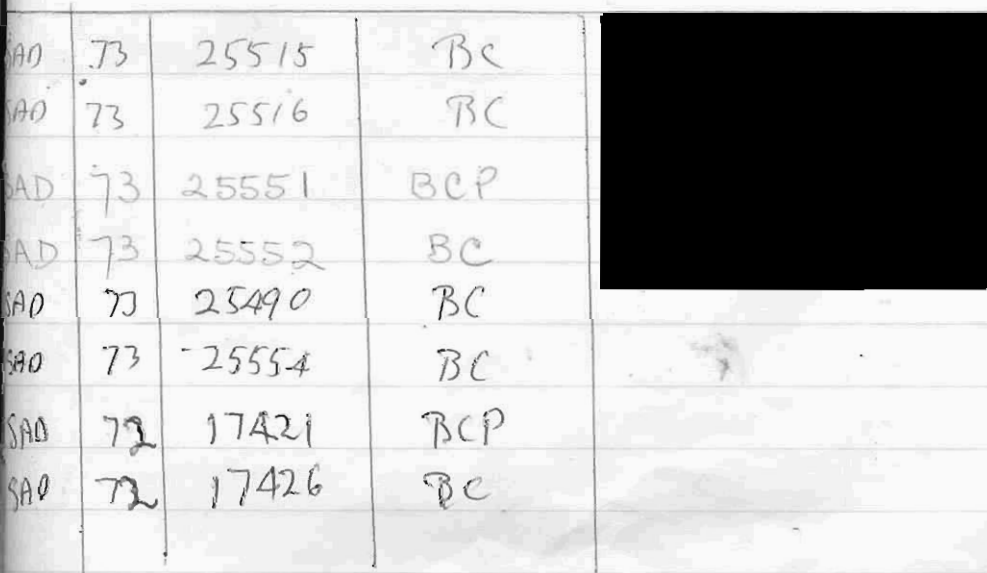 SAD 73 25515 BC
SAD 73 25516 BC
SAD 73 25551 BCP
SAD 73 25552 BC
SAD 73 25490 BC
SAD 73 25554 BC
SAD 72 17421 BCP
SAD 72 17426 BC